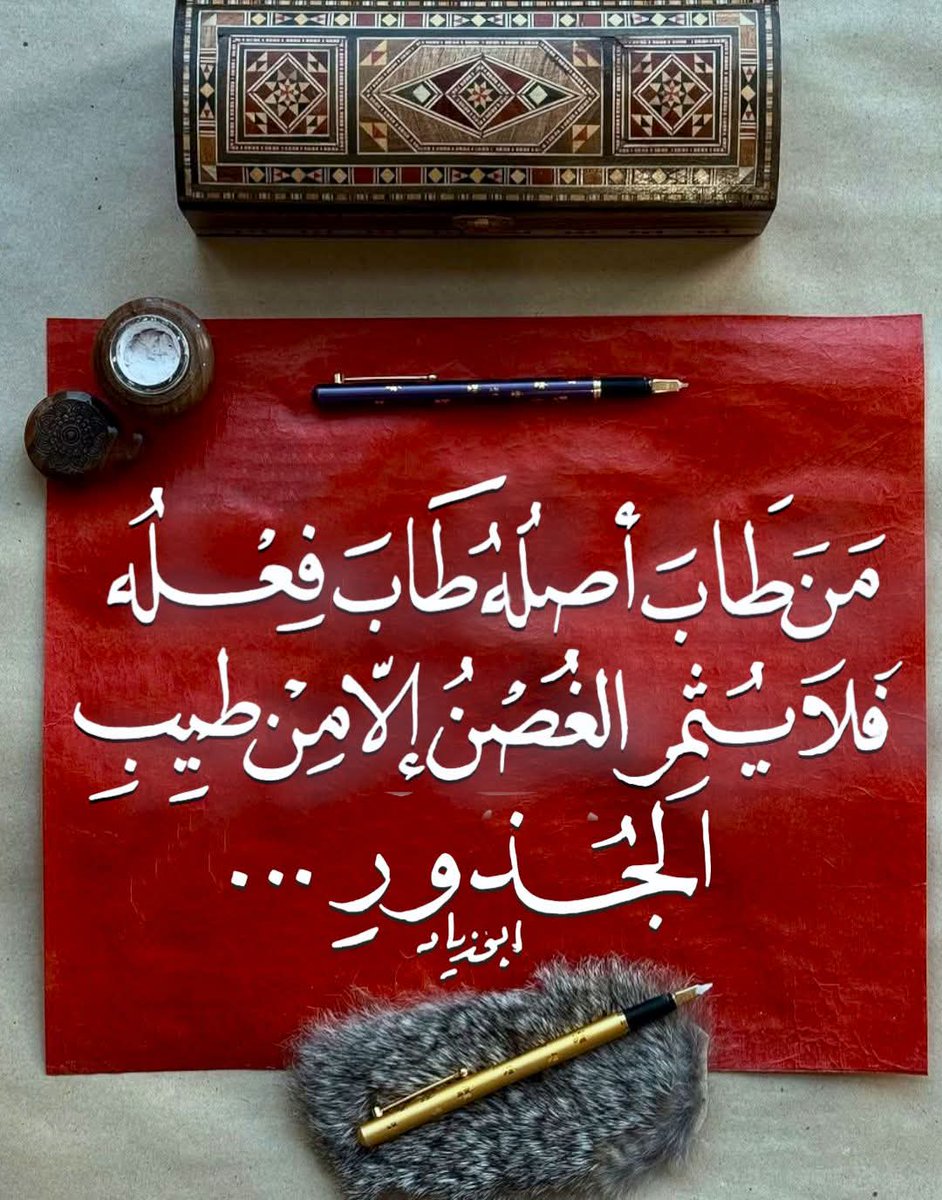 مَنَ طَابَ أصلُهُ طَابَ فِعْلُه
فَلَا يُثمِرِ الغُصْنُ إلّا مِنْ طيِبِ
الجُذورِ ...
ابوزياد